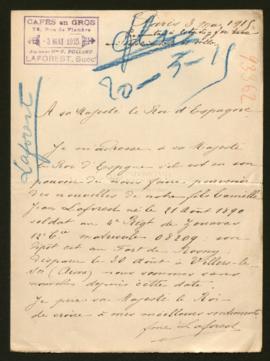 CAFÉS en GROS
76, Rue de Flandre
3 MAI 1915
LAFOREST, Succr
3 mai 1915
20-3-15
Laforest
A sa Majesté le Roi d'Espagne
Je m'adresse à sa Majesté
le Roi d'Espagne s'il est en son
pouvoir de nous faire parvenir
des nouvelles de notre fils Camille
Jean Laforest né le 21 Août 1890
soldat au 2e Régt de Zouaves
12e Cie matricule 08209 son
dépôt est au Fort de Rosny
disparu le 30 Août à Villers-le
nous sommes sans
nouvelles depuis cette date.
Je prie sa Majesté le Roi
de croire à mes meilleurs sentiments
Laforest